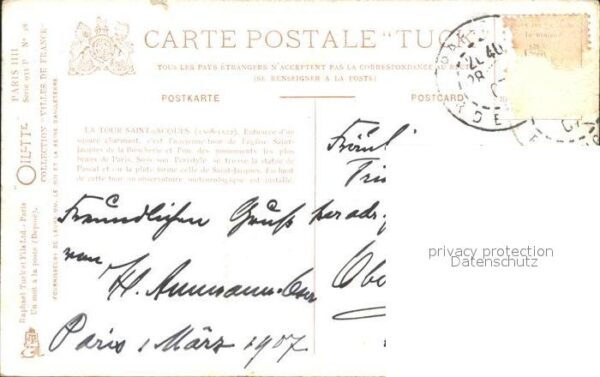 CARTE POSTALE "TUC
TOUS LES PAYS ÉTRANGERS N'ACCEPTENT PAS LA CORRESPONDANCE A
(SE RENSEIGNER A LA POSTE)
POSTKARTE
POSTCARD
PARIS IIII
Série 911 P. Nº 38
"OILETTE"
COLLECTION "VILLES DE FRANCE"
FOURNISSEURS DE LEURS MM. LE ROI ET LA REINE D'ANGLETERRE
Raphael Tuck et Fils Ltd - Paris
Un mot à la poste (Déposé)
LA TOUR SAINT-JACQUES (1508-1522). Entourée d'un
square charmant, c'est l'ancienne tour de l'Eglise Saint-
Jacques de la Boucherie et l'un des monuments les plus
beaux de Paris. Sous son Péristyle se trouve la statue de
Pascal et sur la plate-forme celle de Saint-Jacques. En haut
de cette tour un observatoire météorologique est installé.
Freundlichen Gruß
von
H. Ammann
Paris 1 März 1907
Fräul
Obe
privacy protection
Datenschutz